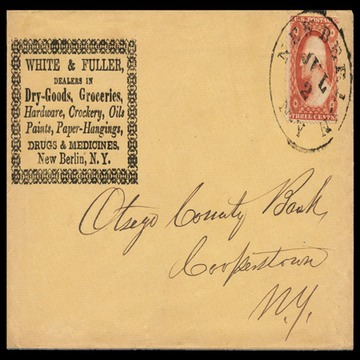 WHITE & FULLER,
DEALERS IN
Dry-Goods, Groceries,
Hardware, Crockery, Oils
Paints, Paper-Hangings,
DRUGS & MEDICINES,
New Berlin, N.Y.
U.S. POSTAGE
THREE CENTS
NEW BERLIN
JUL
2
N.Y.
Otsego County Bank,
Cooperstown
N.Y.